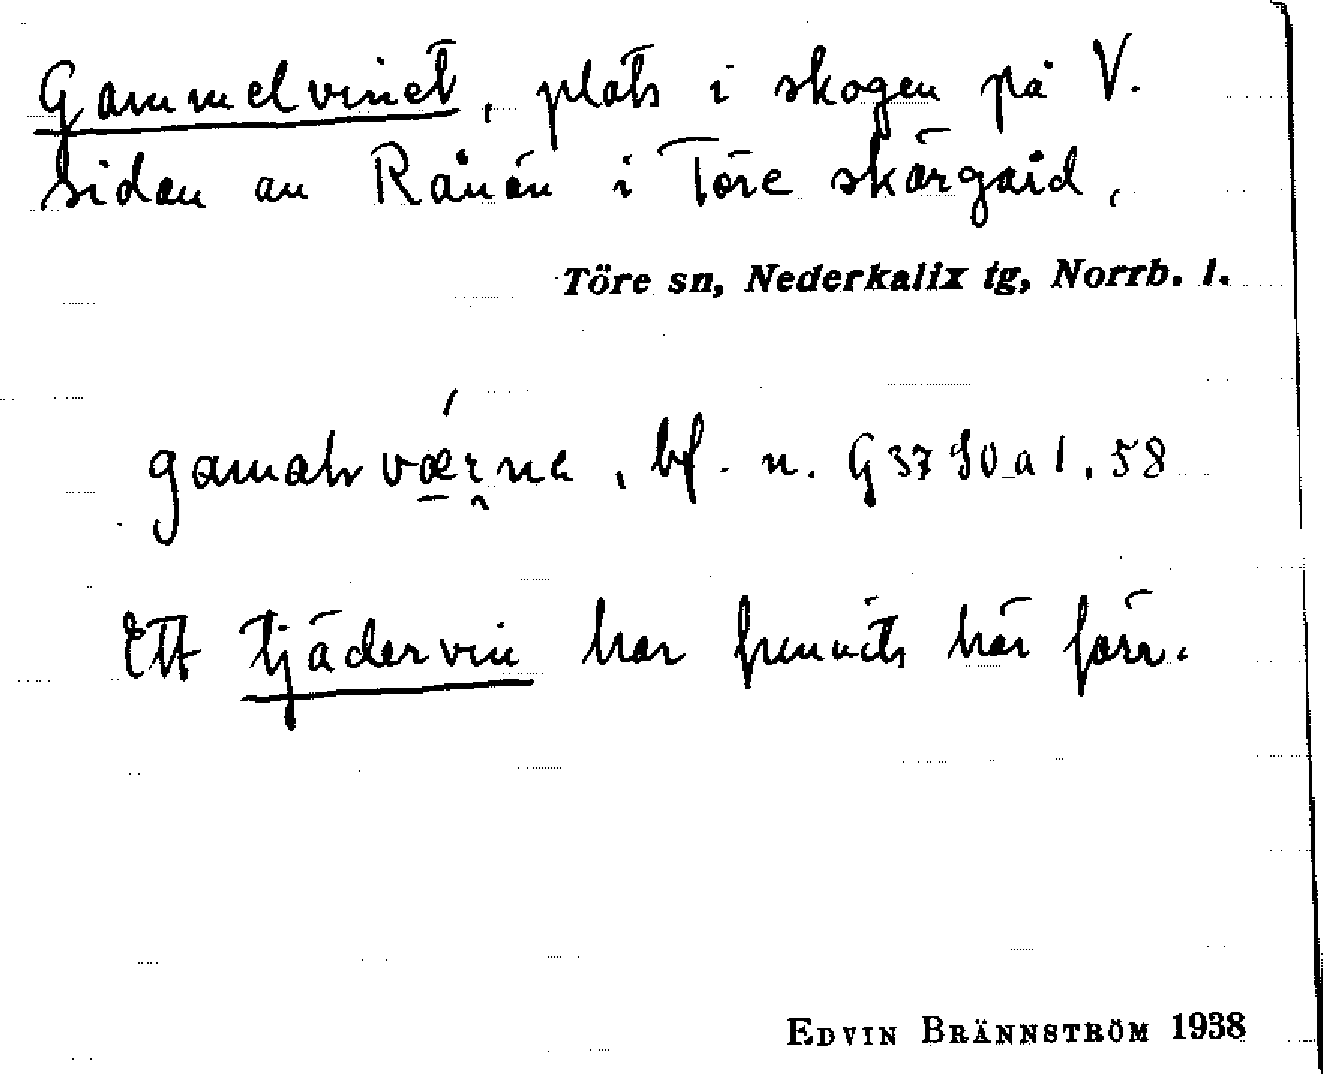 Gammelvinet, plats i skogen på V.
sidan av Rånön i Töre skärgård,
Töre sn, Nederkalix tg, Norrb. l.
bf. n. G 3790 a 1. 58
Ett tjädervin har funnits här förr.
EDVIN BRÄNNSTRÖM 1938